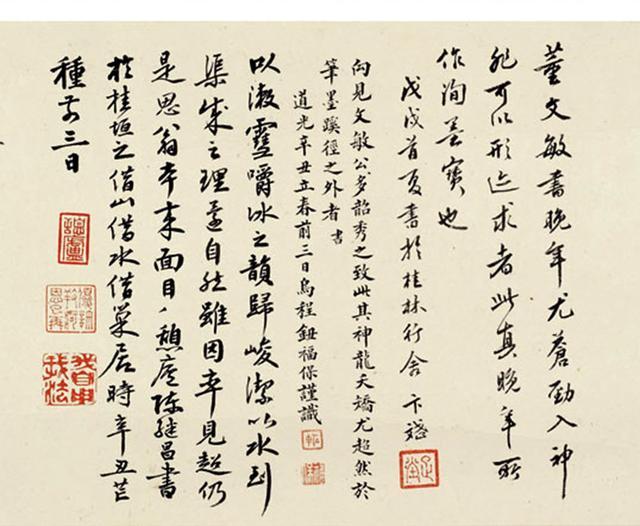 董文敏書晚年尤蒼勁入神
非可以形迹求者此真晚年所
作洵寶也
戊戌首夏書於桂林行舍
向見文敏公多韶秀之致此其神龍夭矯尤超然於
筆墨蹊徑之外者書
道光辛丑立春前三日烏程鈕福保謹識
以漱雪嚼冰之韻歸峻潔以水到
渠成之理還自然雖因率見超仍
是思翁本來面目憩廬陳繼昌書
於桂垣之借山借水借巢居時辛丑芒
種前三日
我自用我法